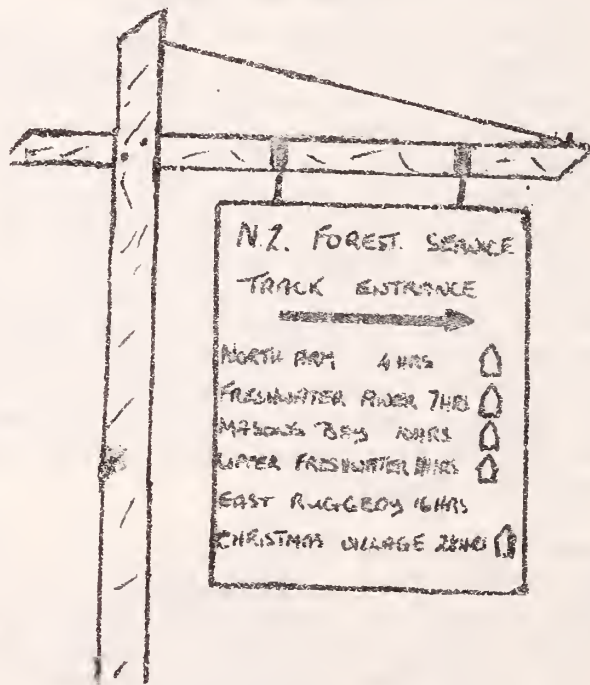 N.Z. FOREST. SERVICE
TRACK ENTRANCE
NORTH ARM 4 HRS
FRESHWATER RIVER 7HRS
MASONS BAY 10HRS
UPPER FRESHWATER HRS
EAST RUGGEDY 16HRS
CHRISTMAS VILLAGE HRS